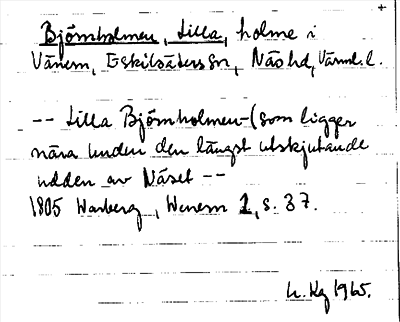 Björnholmen, Lilla, holme i
Vänern, Eskilsäters sn, Näs hd, Värml. l.
-- Lilla Björnholmen - (som ligger
nära under den längst utskjutande
udden av Näset --
1805 Warberg, Wenern 1, s. 37.
1965.